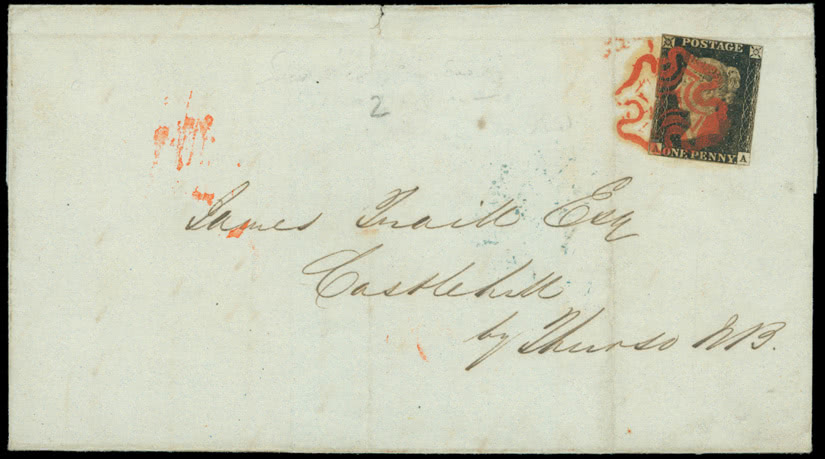 POSTAGE
A ONE PENNY A
2
James Traill Esq
Castlehill
by Thurso NB.